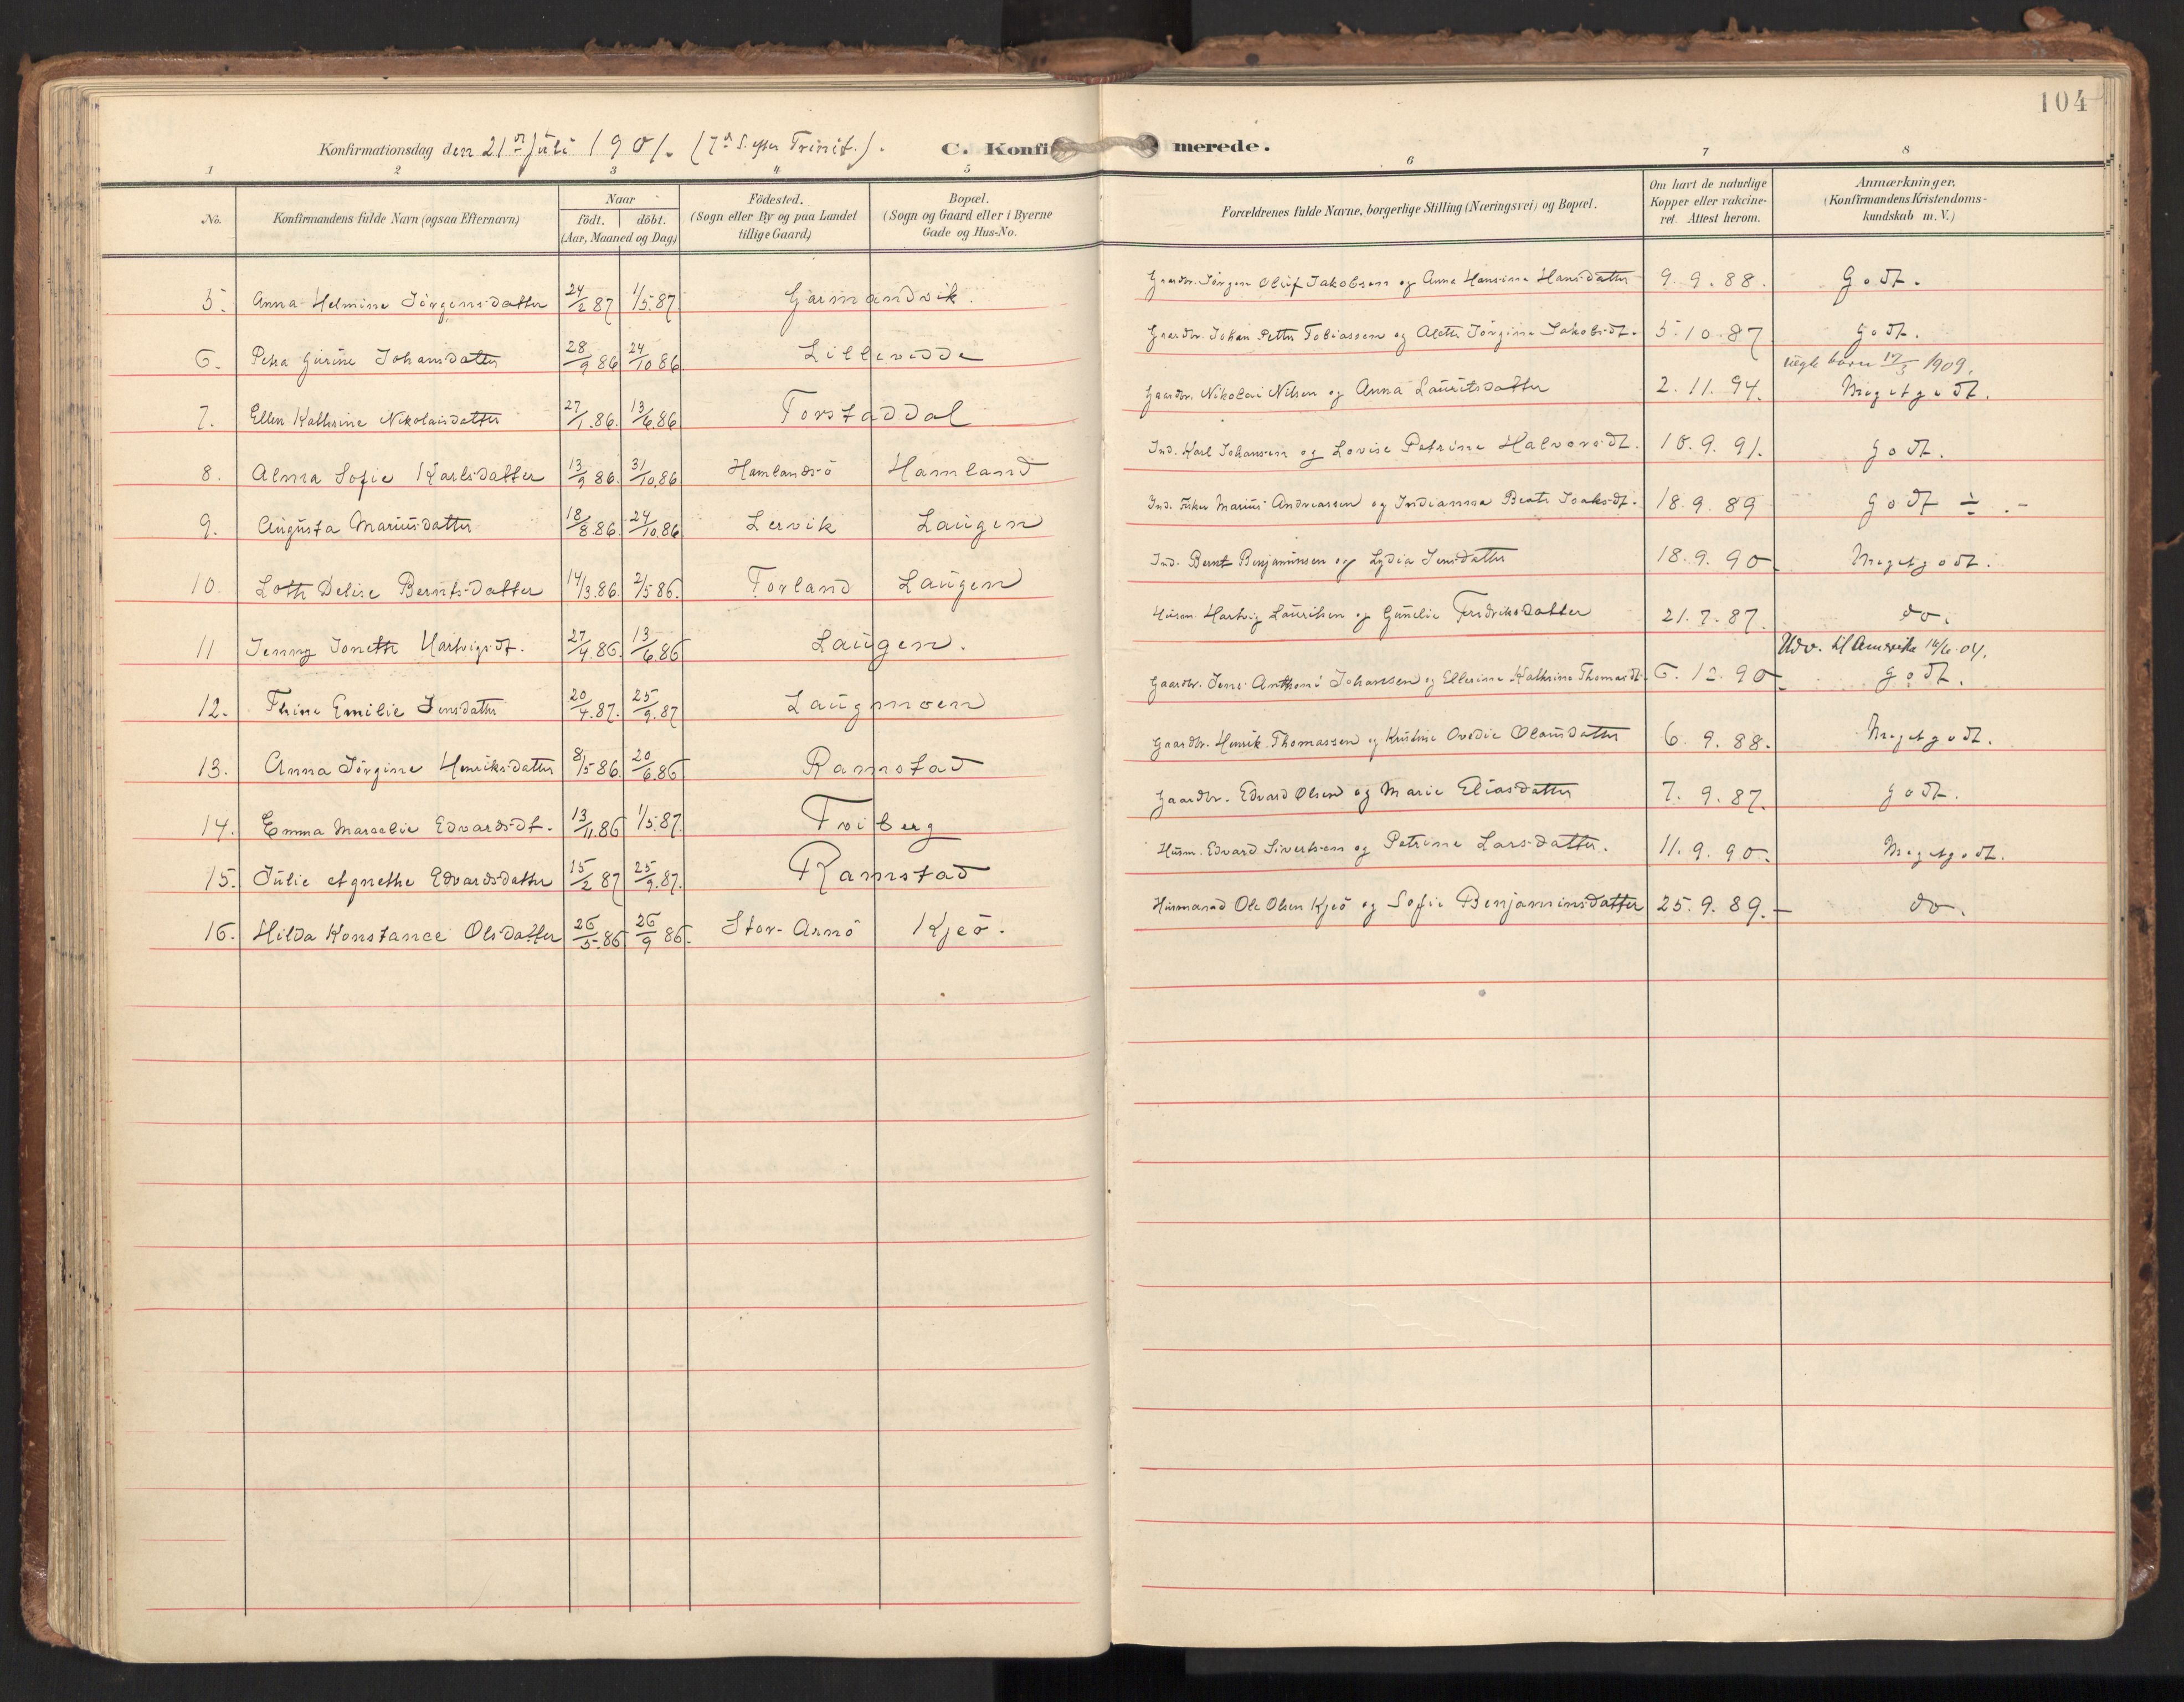 104
Konfirmationsdag den 21de Juli 1901. (7de S. efter Trinit.).
C. Konfirmerede.
1 2 3 4 5 6 7 8
No. Konfirmandens fulde Navn (ogsaa Efternavn) Naar födt. döbt. (Aar, Maaned og Dag) Födested. (Sogn eller By og paa Landet tillige Gaard) Bopæl. (Sogn og Gaard eller i Byerne Gade og Hus-No. Forældrenes fulde Navne, borgerlige Stilling (Næringsvei) og Bopæl. Om havt de naturlige Kopper eller vakcineret. Attest herom. Anmærkninger. (Konfirmandens Kristendomskundskab m. V.)
5. Anna Helmine Jörgensdatter 24/2 87 1/5.87. Garmandvik. Gaardbr. Jörgen Oluf Jakobsen og Anna Hansine Hansdatter 9.9.88. Godt.
6. Petra Gurine Johansdatter 28/9 86 24/10 86 Lillevedde Gaardbr. Johan Petter Tobiassen og Alette Jörgine Jakobsdt. 5.10.87 Godt.
7. Ellen Kathrine Nikolaisdatter 27/1.86. 13/6.86 Torstaddal Gaardbr. Nikolai Nilsen og Anna Lauritsdatter 2.11.94. 17/3 1909. Meget godt.
8. Alma Sofie Karlsdatter 13/9 86. 31/10.86 Hamlandsö Hamland Ind. Karl Johansen og Lovise Petrine Halvorsdt. 10.9.91. Godt.
9. Augusta Mariusdatter 18/8.86. 24/10.86 Lervik Laugen Ind. Fisker Marius Andreassen og Indianna Beate Isaksdt. 18.9.89 Godt ÷ .-
10. Lotte Delise Berntsdatter 14/3.86. 2/5 86. Torland Laugen Ind. Bernt Benjaminsen og Lydia Jensdatter 18.9.90 Meget godt.
11 Jenny Jonette Hartvigsdt. 27/4.86. 13/6.86 Laugen. Husm. Hartvig Lauritsen og Gunelie Fredriksdatter 21.7.87. do.
12. Thine Emilie Jensdatter 20/4.87. 25/9.87 Laugmoen Gaardbr. Jens Anthoni Johansen og Ellerine Kathrine Thomasdt. 6.12.90 Udv. til Amerika 14/6.04. Godt.
13. Anna Jörgine Henriksdatter 8/5 86. 20/6.86 Ramstad Gaardbr. Henrik Thomassen og Kristine Ovedie Olausdatter 6.9.88. Meget godt.
14. Emma Marselie Edvardsdt. 13/11.86 1/5.87. Fviberg Gaardbr. Edvard Olsen og Marie Eliasdatter 7.9.87. Godt.
15. Julie Agnethe Edvardsdatter 15/2 87 25/9.87. Ramstad Husm. Edvard Sivertsen og Petrine Larsdatter. 11.9.90. Meget godt.
16. Hilda Konstance Olsdatter 26/5.86 26/9 86. Stor-Arnö Kjeö. Husmand Ole Olsen Kjeö og Sofie Benjaminsdatter 25.9.89. do.